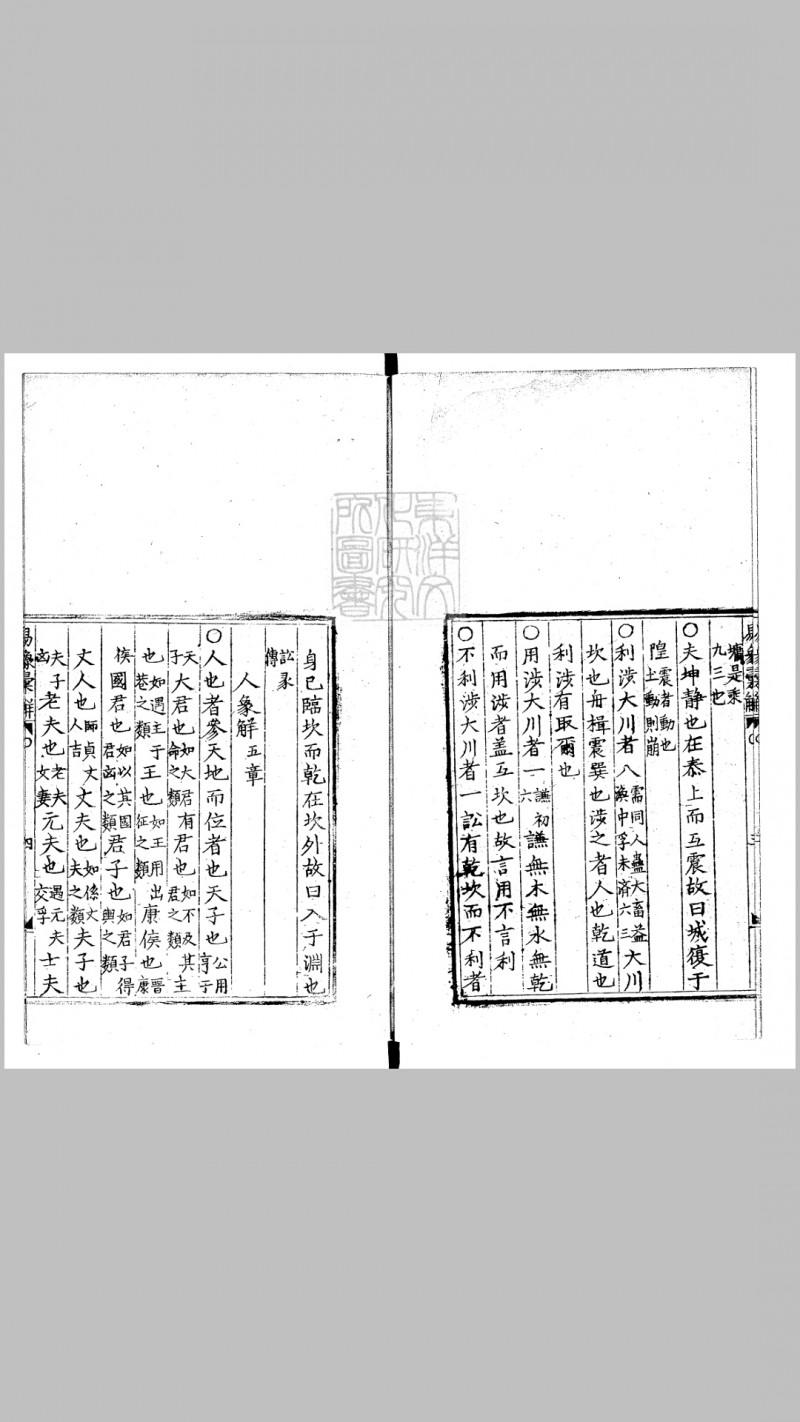 墉是乘
九三也
○夫坤靜也在泰上而互震故曰城復于
隍震者動也土動則崩
○利涉大川者八需同人蠱大畜益渙中孚未濟六三大川
坎也舟楫震巽也涉之者人也乾道也
利涉有取爾也
○用涉大川者一謙初六謙無木無水無乾
而用涉者盖互坎也故言用不言利
○不利涉大川者一訟有乾坎而不利者
身已臨坎而乾在坎外故曰入于淵也
訟彖傳
人象解五章
○人也者參天地而位者也天子也公用亨于
天子大君也如大君有命之類君也如不及其主君之類
也如遇主于巷之類王也如王用出征之類康侯也晋康
侯國君也如以其國君凶之類君子也如君子得輿之類
丈人也師貞丈人吉丈夫也如係丈夫之類夫子也
夫子凶老夫也老夫女妻元夫也遇元夫交孚士夫
易象彙解
三
易象彙解
四
東洋文化研究所圖書